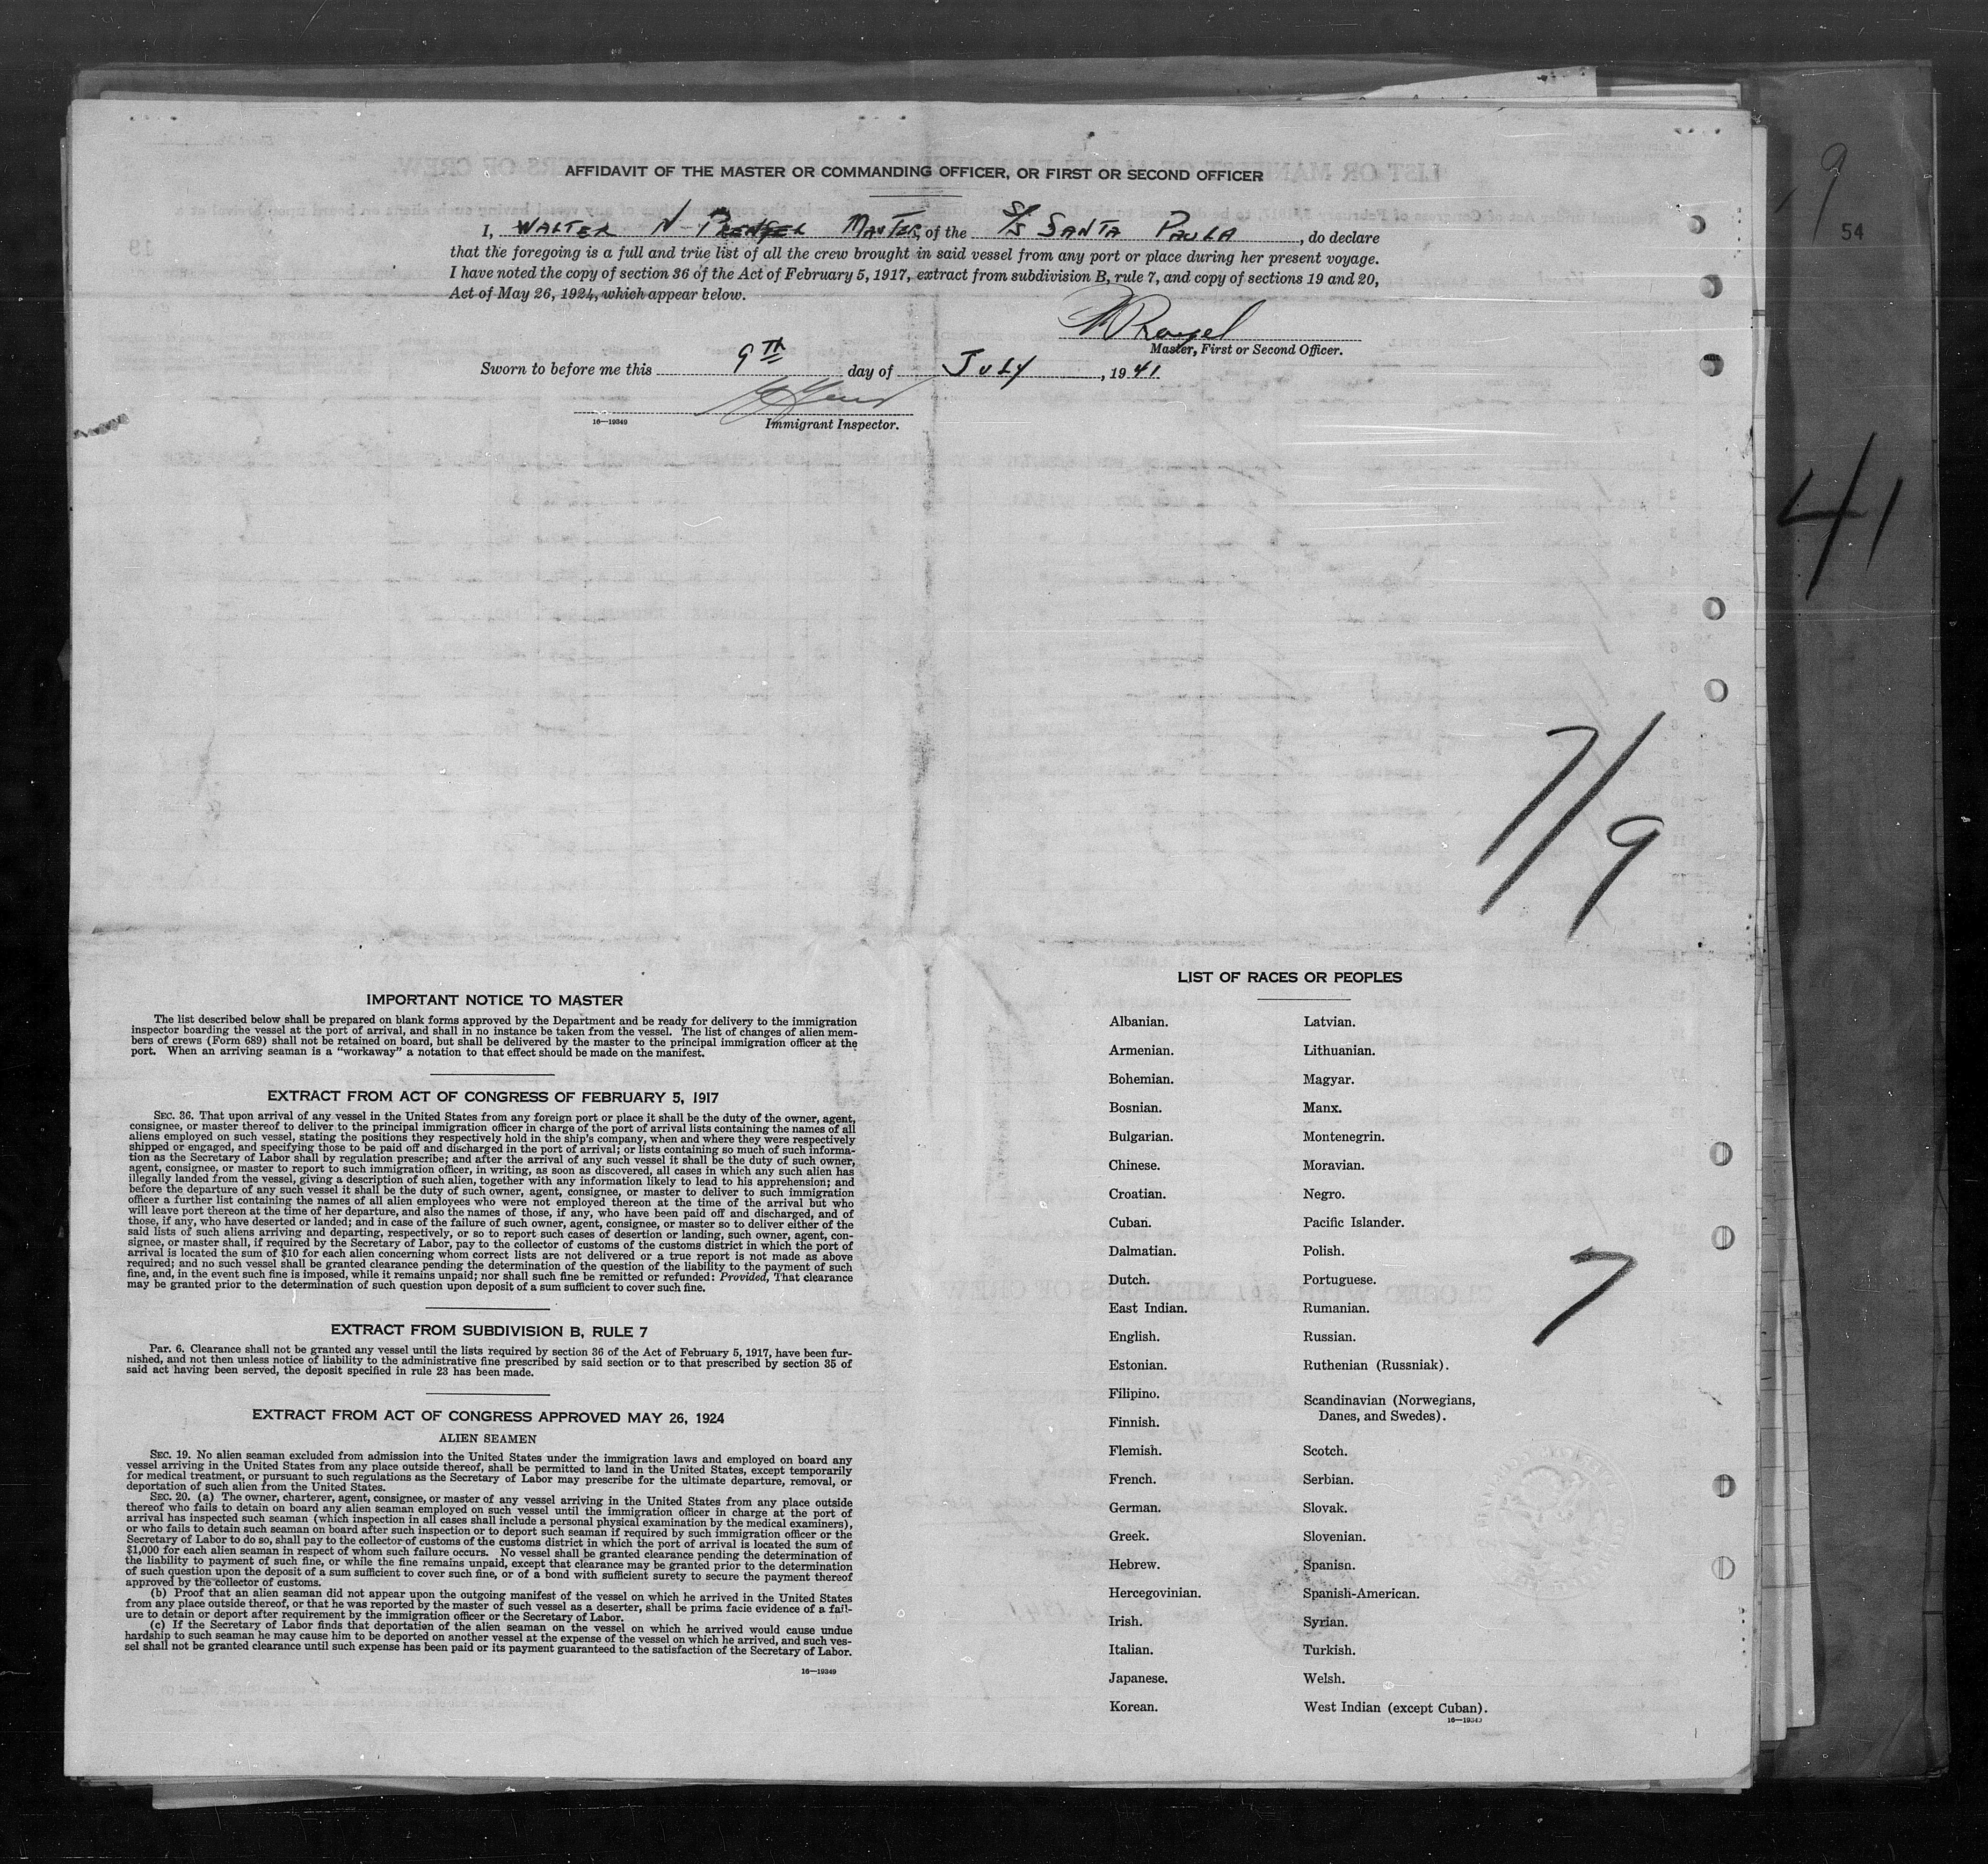 AFFIDAVIT OF THE MASTER OR COMMANDING OFFICER, OR FIRST OR SECOND OFFICER
I, WALTER N. PRENGEL MASTER, of the S/S SANTA PAULA, do declare
that the foregoing is a full and true list of all the crew brought in said vessel from any port or place during her present voyage.
I have noted the copy of section 36 of the Act of February 5, 1917, extract from subdivision B, rule 7, and copy of sections 19 and 20,
Act of May 26, 1924, which appear below.
Master, First or Second Officer.
Sworn to before me this 9TH day of JULY, 1941
16—19349
Immigrant Inspector.
9
54
41
7/9
7
IMPORTANT NOTICE TO MASTER
The list described below shall be prepared on blank forms approved by the Department and be ready for delivery to the immigration
inspector boarding the vessel at the port of arrival, and shall in no instance be taken from the vessel. The list of changes of alien mem-
bers of crews (Form 689) shall not be retained on board, but shall be delivered by the master to the principal immigration officer at the
port. When an arriving seaman is a “workaway” a notation to that effect should be made on the manifest.
EXTRACT FROM ACT OF CONGRESS OF FEBRUARY 5, 1917
SEC. 36. That upon arrival of any vessel in the United States from any foreign port or place it shall be the duty of the owner, agent,
consignee, or master thereof to deliver to the principal immigration officer in charge of the port of arrival lists containing the names of all
aliens employed on such vessel, stating the positions they respectively hold in the ship's company, when and where they were respectively
shipped or engaged, and specifying those to be paid off and discharged in the port of arrival; or lists containing so much of such informa-
tion as the Secretary of Labor shall by regulation prescribe; and after the arrival of any such vessel it shall be the duty of such owner,
agent, consignee, or master to report to such immigration officer, in writing, as soon as discovered, all cases in which any such alien has
illegally landed from the vessel, giving a description of such alien, together with any information likely to lead to his apprehension; and
before the departure of any such vessel it shall be the duty of such owner, agent, consignee, or master to deliver to such immigration
officer a further list containing the names of all alien employees who were not employed thereon at the time of the arrival but who
will leave port thereon at the time of her departure, and also the names of those, if any, who have been paid off and discharged, and of
those, if any, who have deserted or landed; and in case of the failure of such owner, agent, consignee, or master so to deliver either of the
said lists of such aliens arriving and departing, respectively, or so to report such cases of desertion or landing, such owner, agent, con-
signee, or master shall, if required by the Secretary of Labor, pay to the collector of customs of the customs district in which the port of
arrival is located the sum of $10 for each alien concerning whom correct lists are not delivered or a true report is not made as above
required; and no such vessel shall be granted clearance pending the determination of the question of the liability to the payment of such
fine, and, in the event such fine is imposed, while it remains unpaid; nor shall such fine be remitted or refunded: Provided, That clearance
may be granted prior to the determination of such question upon deposit of a sum sufficient to cover such fine.
EXTRACT FROM SUBDIVISION B, RULE 7
Par. 6. Clearance shall not be granted any vessel until the lists required by section 36 of the Act of February 5, 1917, have been fur-
nished, and not then unless notice of liability to the administrative fine prescribed by said section or to that prescribed by section 35 of
said act having been served, the deposit specified in rule 23 has been made.
EXTRACT FROM ACT OF CONGRESS APPROVED MAY 26, 1924
ALIEN SEAMEN
SEC. 19. No alien seaman excluded from admission into the United States under the immigration laws and employed on board any
vessel arriving in the United States from any place outside thereof, shall be permitted to land in the United States, except temporarily
for medical treatment, or pursuant to such regulations as the Secretary of Labor may prescribe for the ultimate departure, removal, or
deportation of such alien from the United States.
SEC. 20. (a) The owner, charterer, agent, consignee, or master of any vessel arriving in the United States from any place outside
thereof who fails to detain on board any alien seaman employed on such vessel until the immigration officer in charge at the port of
arrival has inspected such seaman (which inspection in all cases shall include a personal physical examination by the medical examiners),
or who fails to detain such seaman on board after such inspection or to deport such seaman if required by such immigration officer or the
Secretary of Labor to do so, shall pay to the collector of customs of the customs district in which the port of arrival is located the sum of
$1,000 for each alien seaman in respect of whom such failure occurs. No vessel shall be granted clearance pending the determination of
the liability to payment of such fine, or while the fine remains unpaid, except that clearance may be granted prior to the determination
of such question upon the deposit of a sum sufficient to cover such fine, or of a bond with sufficient surety to secure the payment thereof
approved by the collector of customs.
(b) Proof that an alien seaman did not appear upon the outgoing manifest of the vessel on which he arrived in the United States
from any place outside thereof, or that he was reported by the master of such vessel as a deserter, shall be prima facie evidence of a fail-
ure to detain or deport after requirement by the immigration officer or the Secretary of Labor.
(c) If the Secretary of Labor finds that deportation of the alien seaman on the vessel on which he arrived would cause undue
hardship to such seaman he may cause him to be deported on another vessel at the expense of the vessel on which he arrived, and such ves-
sel shall not be granted clearance until such expense has been paid or its payment guaranteed to the satisfaction of the Secretary of Labor.
16—19349
LIST OF RACES OR PEOPLES
Albanian.
Armenian.
Bohemian.
Bosnian.
Bulgarian.
Chinese.
Croatian.
Cuban.
Dalmatian.
Dutch.
East Indian.
English.
Estonian.
Filipino.
Finnish.
Flemish.
French.
German.
Greek.
Hebrew.
Hercegovinian.
Irish.
Italian.
Japanese.
Korean.
Latvian.
Lithuanian.
Magyar.
Manx.
Montenegrin.
Moravian.
Negro.
Pacific Islander.
Polish.
Portuguese.
Rumanian.
Russian.
Ruthenian (Russniak).
Scandinavian (Norwegians,
Danes, and Swedes).
Scotch.
Serbian.
Slovak.
Slovenian.
Spanish.
Spanish-American.
Syrian.
Turkish.
Welsh.
West Indian (except Cuban).
16—19349